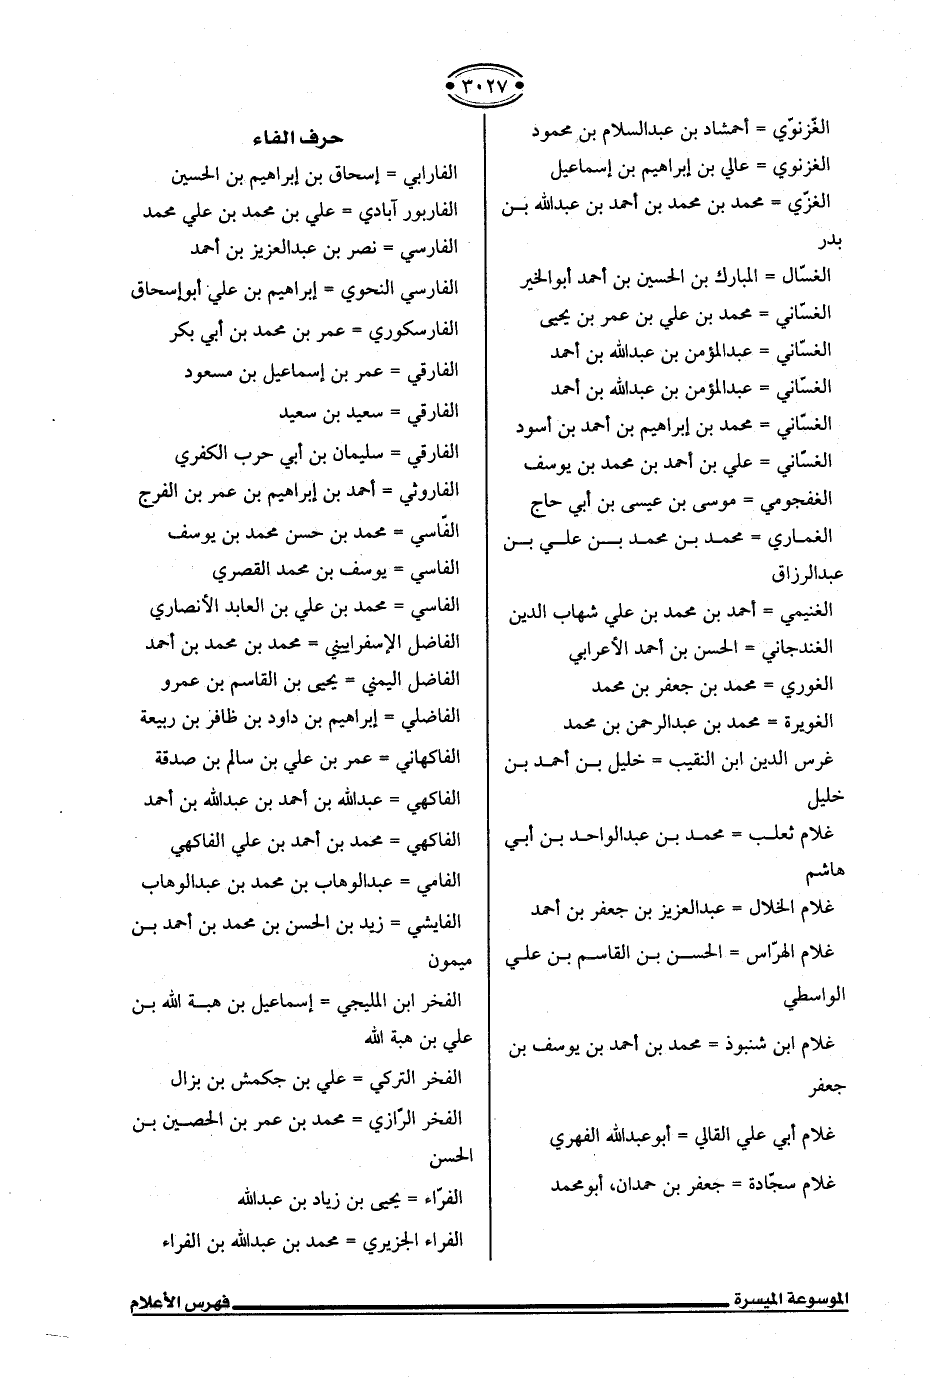 ٣٠٢٧
الغّزنوّي = أحمشاد بن عبدالسلام بن محمود
الغزنوي = عالي بن إبراهيم بن إسماعيل
الغزّي = محمد بن محمد بن أحمد بن عبدالله بن
بدر
الغسّال = المبارك بن الحسين بن أحمد أبوالخير
الغسّاني = محمد بن علي بن عمر بن يحيى
الغسّاني = عبدالمؤمن بن عبدالله بن أحمد
الغسّاني = عبدالمؤمن بن عبدالله بن أحمد
الغسّاني = محمد بن إبراهيم بن أحمد بن أسود
الغسّاني = علي بن أحمد بن محمد بن يوسف
الغفجومي = موسى بن عيسى بن أبي حاج
الغماري = محمد بن محمد بن علي بن
عبدالرزاق
الغنيمي = أحمد بن محمد بن علي شهاب الدين
الغندجاني = الحسن بن أحمد الأعرابي
الغوري = محمد بن جعفر بن محمد
الغويرة = محمد بن عبدالرحمن بن محمد
غرس الدين ابن النقيب = خليل بن أحمد بن
خليل
غلام ثعلب = محمد بن عبدالواحد بن أبي
هاشم
غلام الخلال = عبدالعزيز بن جعفر بن أحمد
غلام الهرّاس = الحسن بن القاسم بن علي
الواسطي
غلام ابن شنبوذ = محمد بن أحمد بن يوسف بن
جعفر
غلام أبي علي القالي = أبوعبدالله الفهري
غلام سجّادة = جعفر بن حمدان، أبومحمد
حرف الفاء
الفارابي = إسحاق بن إبراهيم بن الحسين
الفاربور آبادي = علي بن محمد بن علي محمد
الفارسي = نصر بن عبدالعزيز بن أحمد
الفارسي النحوي = إبراهيم بن علي أبوإسحاق
الفارسكوري = عمر بن محمد بن أبي بكر
الفارقي = عمر بن إسماعيل بن مسعود
الفارقي = سعيد بن سعيد
الفارقي = سليمان بن أبي حرب الكفري
الفاروثي = أحمد بن إبراهيم بن عمر بن الفرج
الفّاسي = محمد بن حسن محمد بن يوسف
الفاسي = يوسف بن محمد القصري
الفاسي = محمد بن علي بن العابد الأنصاري
الفاضل الإسفراييني = محمد بن محمد بن أحمد
الفاضل اليمني = يحيى بن القاسم بن عمرو
الفاضلي = إبراهيم بن داود بن ظافر بن ربيعة
الفاكهاني = عمر بن علي بن سالم بن صدقة
الفاكهي = عبدالله بن أحمد بن عبدالله بن أحمد
الفاكهي = محمد بن أحمد بن علي الفاكهي
الفامي = عبدالوهاب بن محمد بن عبدالوهاب
الفايشي = زيد بن الحسن بن محمد بن أحمد بن
ميمون
الفخر ابن المليجي = إسماعيل بن هبة الله بن
علي بن هبة الله
الفخر التركي = علي بن جكمش بن بزال
الفخر الرّازي = محمد بن عمر بن الحصين بن
الحسن
الفرّاء = يحيى بن زياد بن عبدالله
الفراء الجزيري = محمد بن عبدالله بن الفراء
الموسوعة الميسرة
فهرس الأعلام